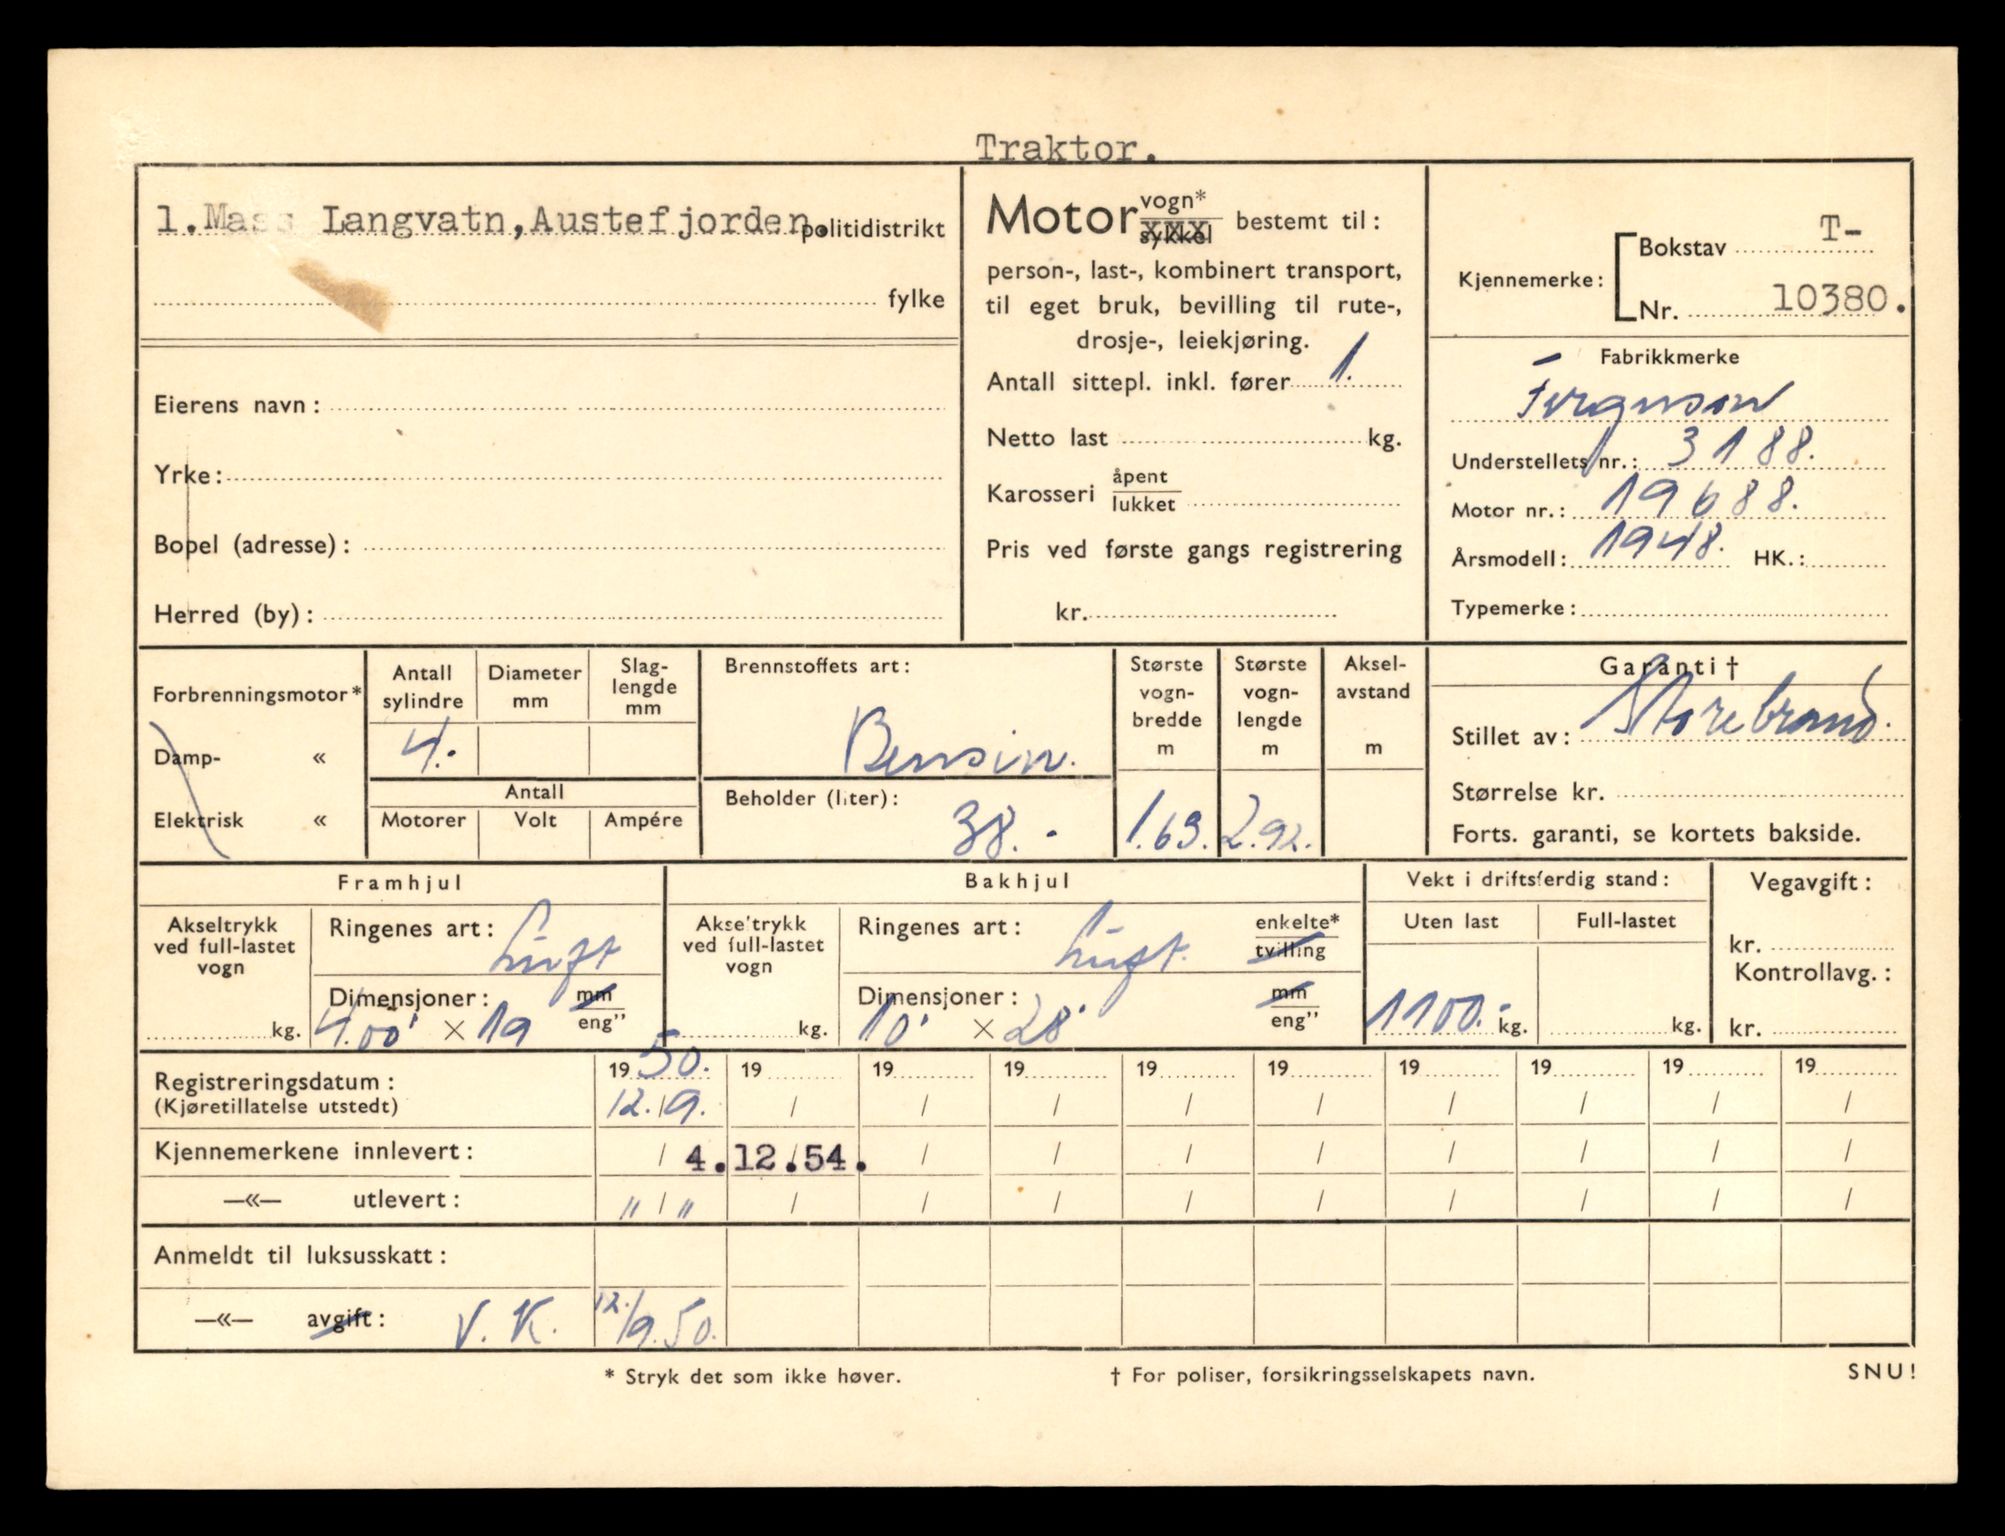 Traktor.
1.Mass Langvatn,Austefjorden. politidistrikt
fylke
Eierens navn:
Yrke:
Bopel (adresse):
Herred (by):
Motor vogn* sykkel bestemt til:
person-, last-, kombinert transport,
til eget bruk, bevilling til rute-,
drosje-, leiekjøring.
Antall sittepl. inkl. fører 1.
Netto last kg.
Karosseri åpent lukket
Pris ved første gangs registrering
kr.
Kjennemerke: Bokstav T-
Nr. 10380.
Fabrikkmerke
Ferguson
Understellets nr.: 3188.
Motor nr.: 19688.
Årsmodell: 1948. HK.:
Typemerke:
Forbrenningsmotor*
Damp- «
Elektrisk «
Antall sylindre
4.-
Diameter mm
Slag-
lengde
mm
Antall
Motorer Volt Ampére
Brennstoffets art:
Bensin.
Beholder (liter):
38.-
Største
vogn-
bredde
m
1.63.
Største
vogn-
lengde
m
2.92.
Aksel-
avstand
m
Garanti †
Stillet av: Storebrand.
Størrelse kr.
Forts. garanti, se kortets bakside.
Framhjul
Akseltrykk
ved full-lastet
vogn
kg.
Ringenes art: Luft
Dimensjoner: mm
4.00' × 19 eng"
Bakhjul
Akseltrykk
ved full-lastet
vogn
kg.
Ringenes art: Luft. enkelte* tvilling
Dimensjoner: mm
10' × 28' eng"
Vekt i driftsferdig stand:
Uten last Full-lastet
1100.- kg. kg.
Vegavgift:
kr.
Kontrollavg.:
kr.
Registreringsdatum: 19 50. 19 19 19 19 19 19 19 19 19
(Kjøretillatelse utstedt) 12./9. / / / / / / / / /
Kjennemerkene innlevert: / 4.12.54. / / / / / / / /
—«— utlevert: " / " / / / / / / / / /
Anmeldt til luksusskatt:
—«— avgift: V. K. 12./9.50.
* Stryk det som ikke høver. † For poliser, forsikringsselskapets navn. SNU!